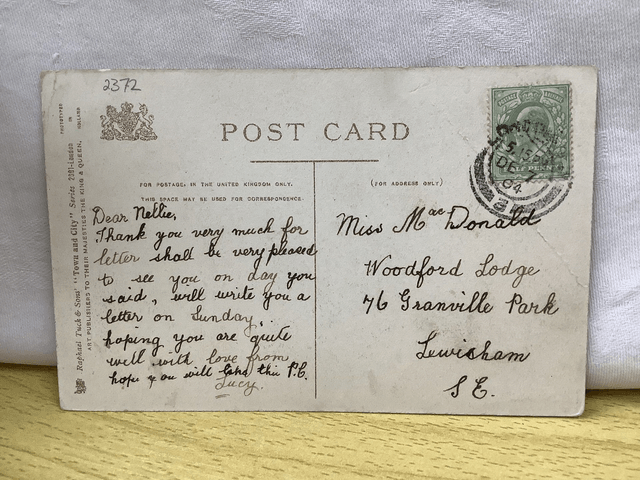 2372
POST CARD
FOR POSTAGE, IN THE UNITED KINGDOM ONLY.
THIS SPACE MAY BE USED FOR CORRESPONDENCE.
(FOR ADDRESS ONLY)
Dear Nellie,
Thank you very much for
letter shall be very pleased
to see you on day you
said, will write you a
letter on Sunday.
hoping you are quite
well with love from
hope you will like this P.C.
Lucy.
Miss Mac Donald
Woodford Lodge
76 Granville Park
Lewisham
S.E.
Raphael Tuck & Sons' "Town and City" Series 2051-London
ART PUBLISHERS TO THEIR MAJESTIES THE KING & QUEEN.
PHOTOTYPED
IN
HOLLAND
5.15 PM
DE
04